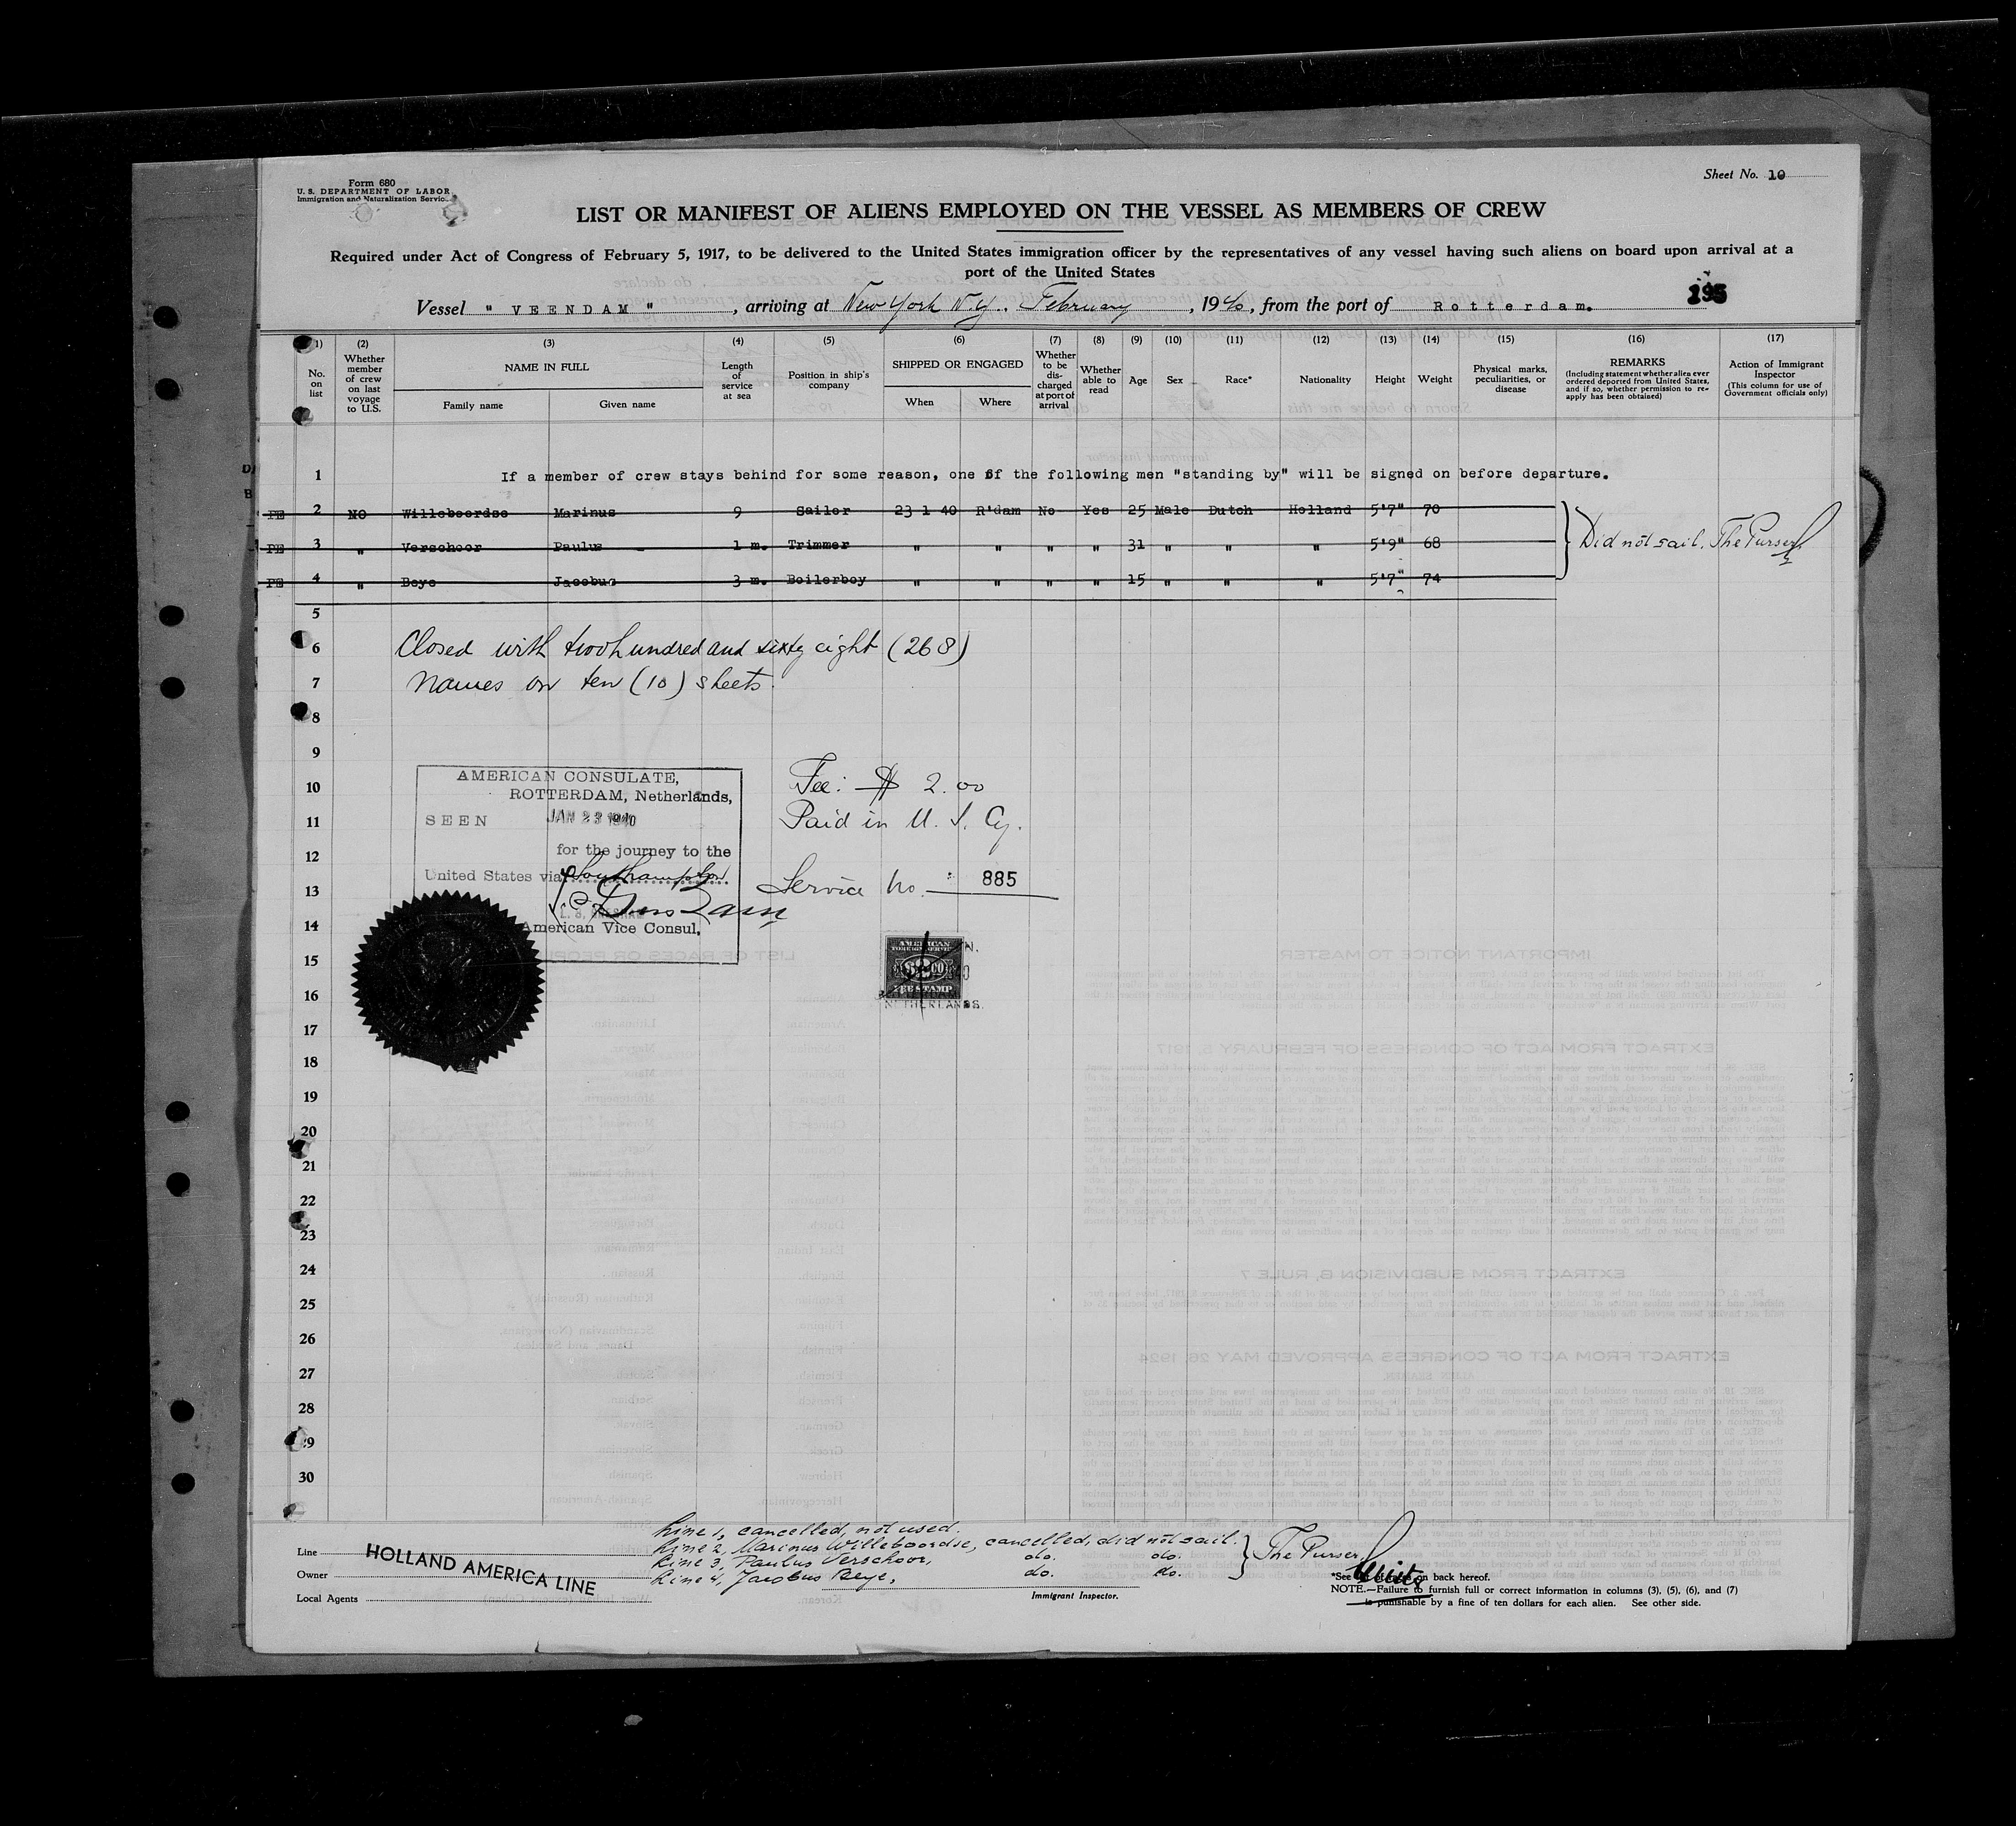 Form 680
U. S. DEPARTMENT OF LABOR
Immigration and Naturalization Service
Sheet No. 10
LIST OR MANIFEST OF ALIENS EMPLOYED ON THE VESSEL AS MEMBERS OF CREW
Required under Act of Congress of February 5, 1917, to be delivered to the United States immigration officer by the representatives of any vessel having such aliens on board upon arrival at a
port of the United States
195
Vessel " VEENDAM " , arriving at New York N.Y., February , 1940, from the port of Rotterdam.
(1) (2) (3) (4) (5) (6) (7) (8) (9) (10) (11) (12) (13) (14) (15) (16) (17)
No. on list
Whether member of crew on last voyage to U.S.
NAME IN FULL
Family name
Given name
Length of service at sea
Position in ship's company
SHIPPED OR ENGAGED
When
Where
Whether to be discharged at port of arrival
Whether able to read
Age
Sex
Race*
Nationality
Height
Weight
Physical marks, peculiarities, or disease
REMARKS
(Including statement whether alien ever ordered deported from United States, and if so, whether permission to reapply has been obtained)
Action of Immigrant Inspector
(This column for use of Government officials only)
1 If a member of crew stays behind for some reason, one of the following men "standing by" will be signed on before departure.
PE 2 NO Willeboordse Marinus 9 Sailor 23 1 40 R'dam No Yes 25 Male Dutch Holland 5'7" 70
PE 3 " Verschoor Paulus 1 m. Trimmer " " " " 31 " " " 5'9" 68
PE 4 " Beye Jacobus 3 m. Boilerboy " " " " 15 " " " 5'7" 74
Did not sail. The Purser
5
6 Closed with two hundred and sixty eight (268)
7 names on ten (10) sheets.
8
9
10
11
12
13
14
15
16
17
18
19
20
21
22
23
24
25
26
27
28
29
30
AMERICAN CONSULATE,
ROTTERDAM, Netherlands,
SEEN JAN 23 1940
for the journey to the
United States via Southampton
American Vice Consul.
Fee: $ 2.00
Paid in U. S. Cy.
Service No. 885
AMERICAN
FOREIGN SERVICE
$2.00
FEE STAMP
NETHERLANDS.
Line 1, cancelled, not used.
Line 2, Marinus Willeboordse, cancelled, did not sail.
Line 3, Paulus Verschoor, do. do.
Line 4, Jacobus Beye, do. do.
The Purser
Line
Owner
Local Agents
HOLLAND AMERICA LINE
Immigrant Inspector.
*See list of races on back hereof.
NOTE.—Failure to furnish full or correct information in columns (3), (5), (6), and (7)
is punishable by a fine of ten dollars for each alien. See other side.